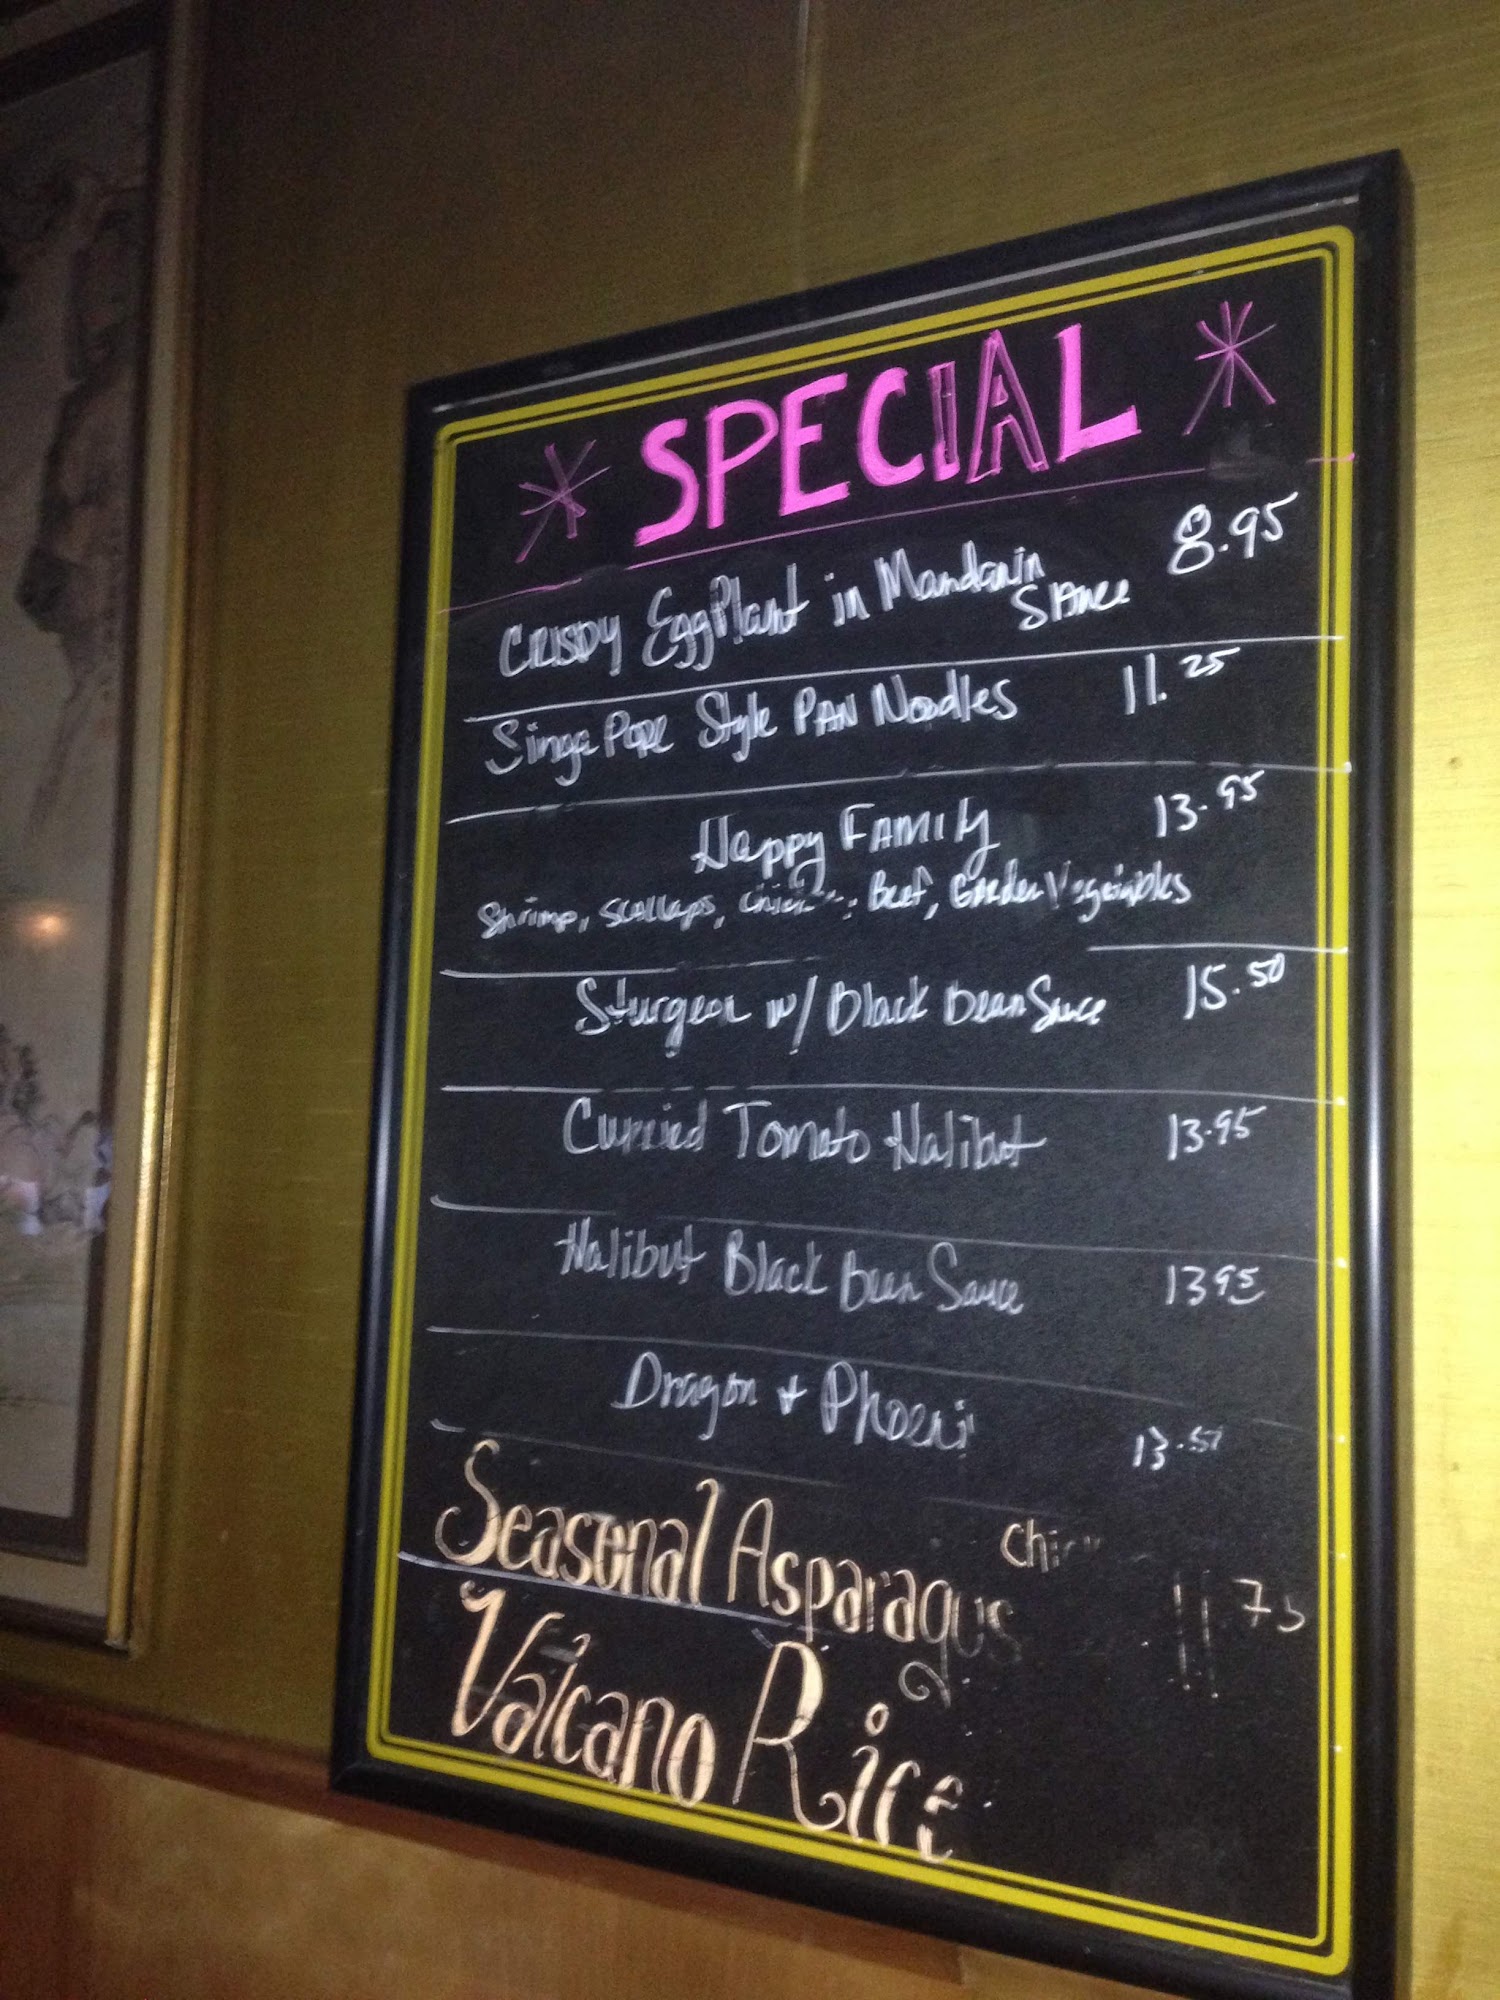 * SPECIAL *
CRISPY EggPlant in Mandarin 8.95
SAuce
SingaPORE Style PAN Noodles 11.25
Happy FAMILY 13.95
Shrimp, Scallops, Beef, Garden Vegetables
Sturgeon w/ Black Bean Sauce 15.50
Curried Tomato Halibut 13.95
Halibut Black Bean Sauce 13 95
Dragon + Phoenix
Seasonal Asparagus
Valcano Rice